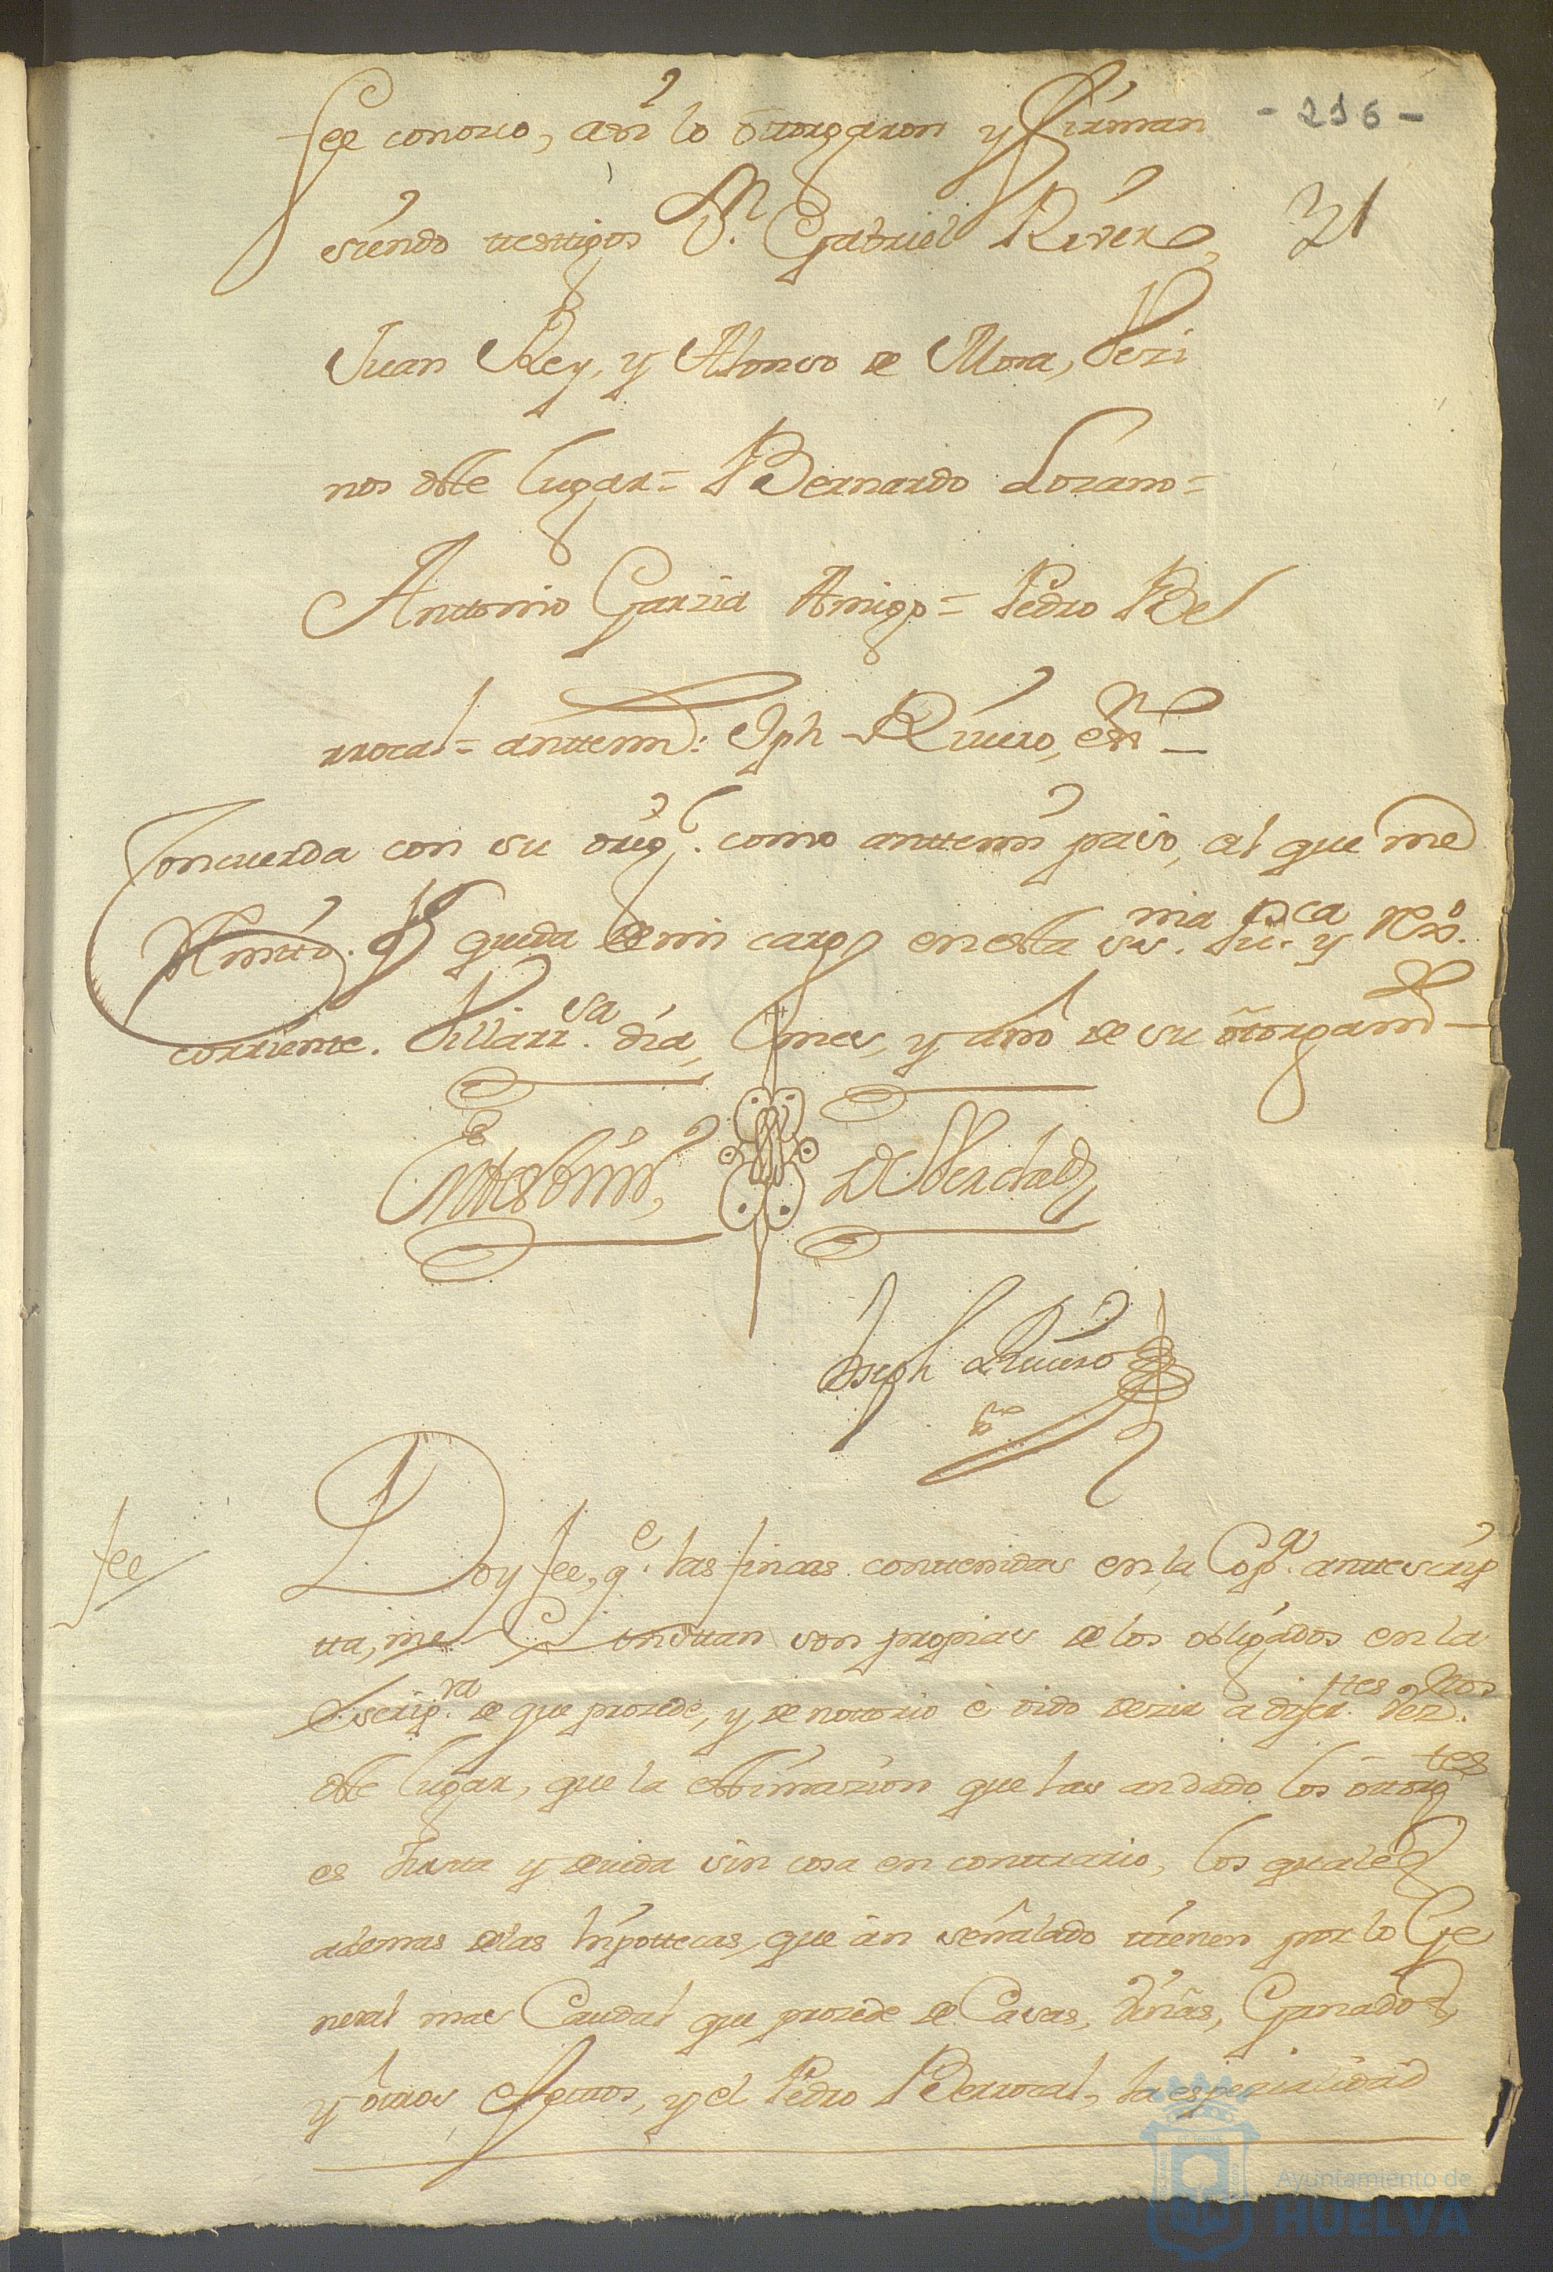 - 216 -
fee conozco, assi lo ōttorgaron y firman
31
siendo ttesttigos Dn. Gabriel River,
Juan Rey, y Alonso de Mora, Vezi
nos deste lugar = Bernardo Lozano =
Anttonio Garzia Amigo = Pedro Be
rrocal = anttemi: Jph Rivero, essno
Concuerda con su orīgl. como anttemi paso, al que me
Remito. Y queda de mi cargo en esta ssma. puca. y Rxo.
corriente. Villarrsa. día, mes, y año de su ōtorgamo
En testimº de Verdad
Joseph Rivero
sno
fee
Doy fee, qe. las fincas conttenidas en la Copa. anttescrip
tta, me Consttan son propias de los obligados en la
Escripra. de que prozede, y de nottorio è oido dezir a diferttes. Veznos.
deste lugar, que la estimazion que las an dado los ottorgtes
es Justa y devida sin cosa en conttrario, los quales
ademas de las hipottecas, que àn señalado ttienen por lo Ge
neral mas Caudal que prozede de Casas, viñas, Ganados,
y ôttros efecttos, y el Pedro Berrocal, la espezialidad
Ayuntamiento de
HUELVA